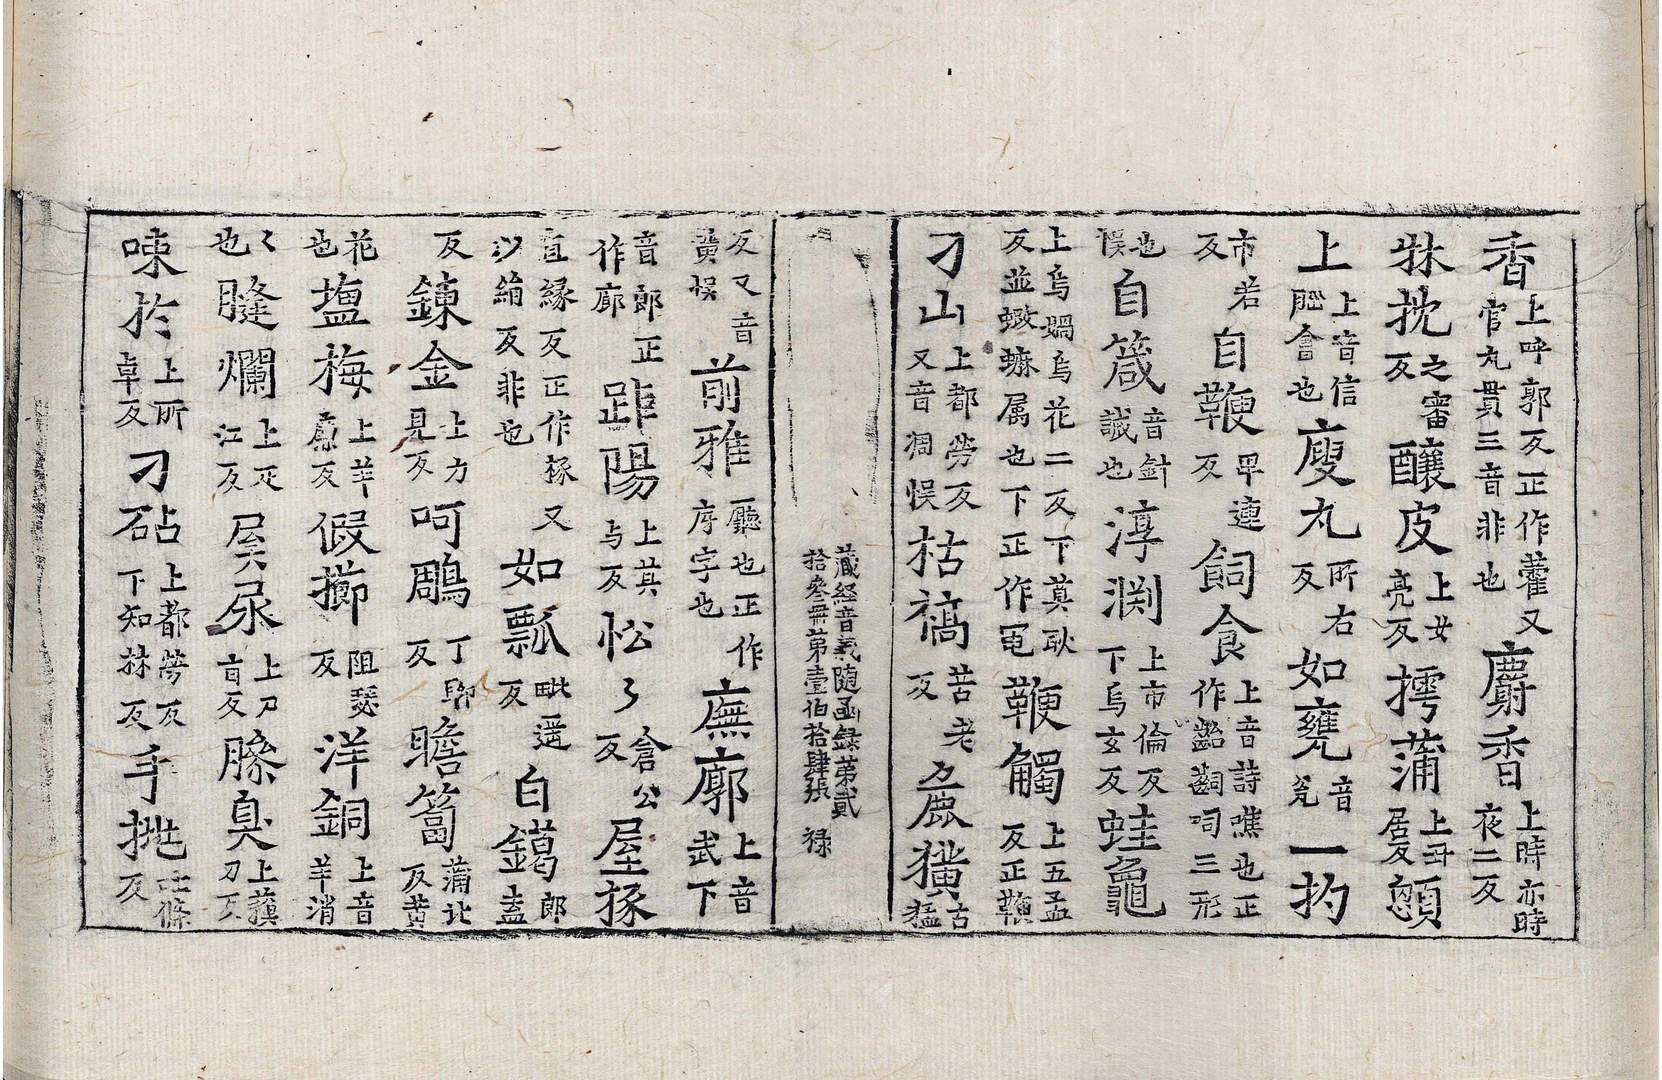 香上呼郭反正作藿又官丸貫三音非也麝香上時亦時夜二反
牀抌之審反釀皮上女亮反摴蒲上丑居反顖
上上音信肥會也廋丸所右反如甕音瓮一扚
市若反自鞭卑連反飼食上音詩噍也正作齝齠呞三形
也悮自箴音針誡也淳渕上市倫反下烏玄反蛙黽
上烏媧烏花二反下莫耿反並蝦蟆属也下正作黽鞕觸上五孟反正鞕
刁山上都勞反又音凋悮枯槁苦老反麁獷古猛
藏経音義隨函録第貳拾叁冊第壹伯拾肆張 禄
反又音黄悮前雅廳也正作序字也廡廓上音武下
音郎正作廊跓陽上其与反忪々倉公反屋椽
直緣反正作椽又以綸反非也如瓢毗遥反白鑞郎盍
反鍊金上力見反呵鵰丁聊反瞻蔔蒲北反黄
花也塩梅上羊廉反假擳阻瑟反洋銅上音羊消
々也膖爛上疋江反屎尿上尸旨反臊臭上蘓刀反
唻扵上所卓反刁砧上都勞反下知林反手挑土條反